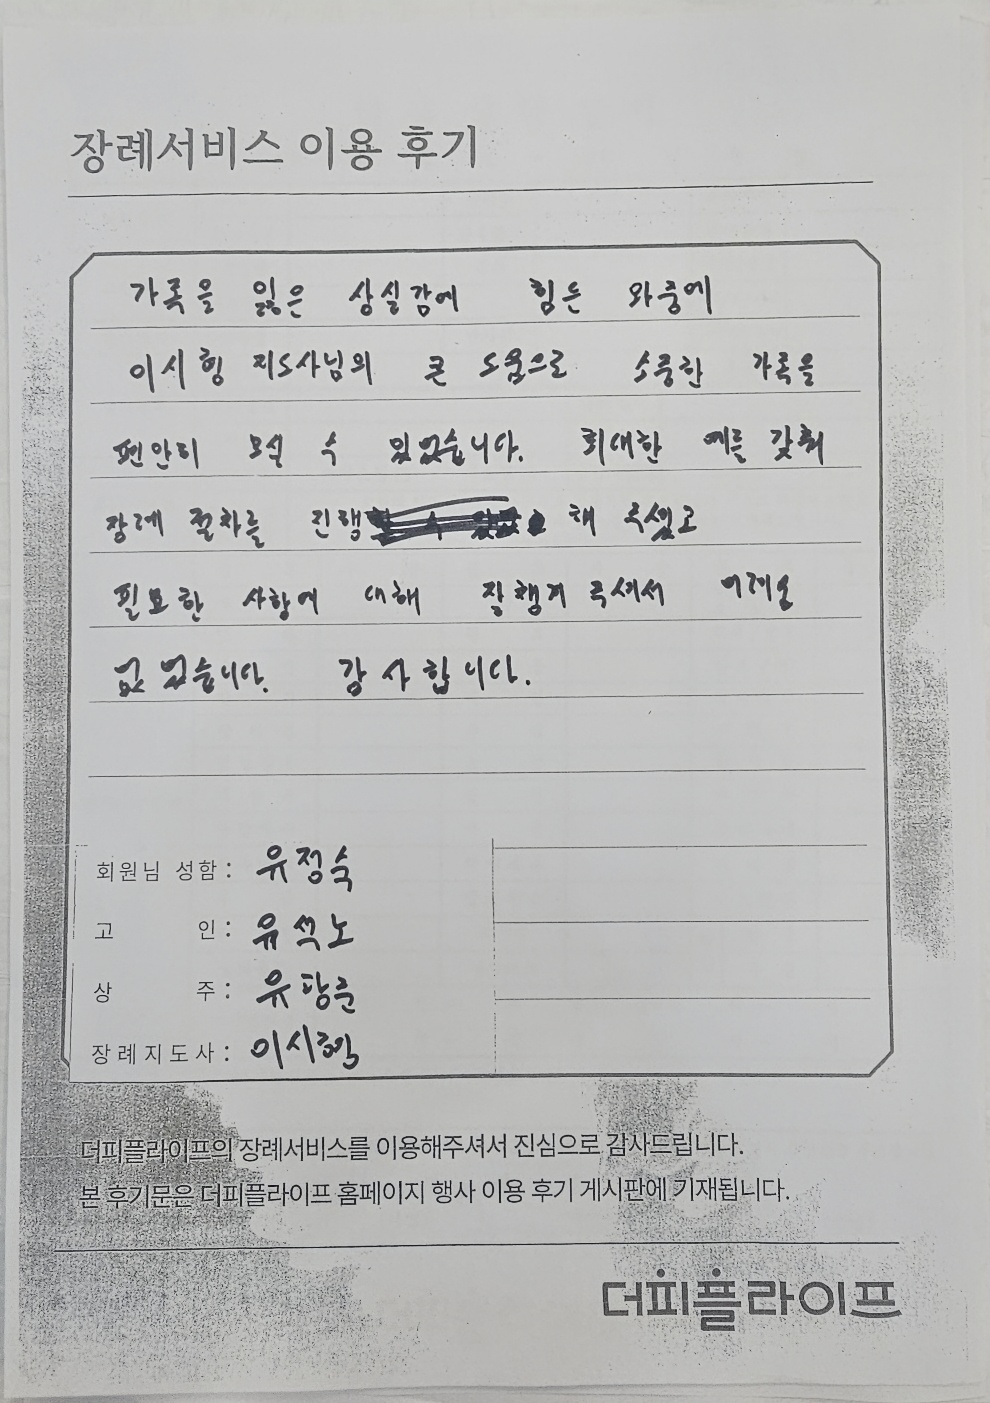 장례서비스 이용 후기
가족을 잃은 상실감에 힘든 와중에
이시형 지도사님의 큰 도움으로 소중한 가족을
편안히 모실 수 있었습니다. 최대한 예를 갖춰
장례 절차를 진행 해 주셨고
필요한 사항에 대해 잘 챙겨 주셔서 어려움
없었습니다. 감사합니다.
회원님 성함 : 유정숙
고 인 : 유석노
상 주 : 유광준
장례지도사 : 이시형
더피플라이프의 장례서비스를 이용해주셔서 진심으로 감사드립니다.
본 후기문은 더피플라이프 홈페이지 행사 이용 후기 게시판에 기재됩니다.
더피플라이프